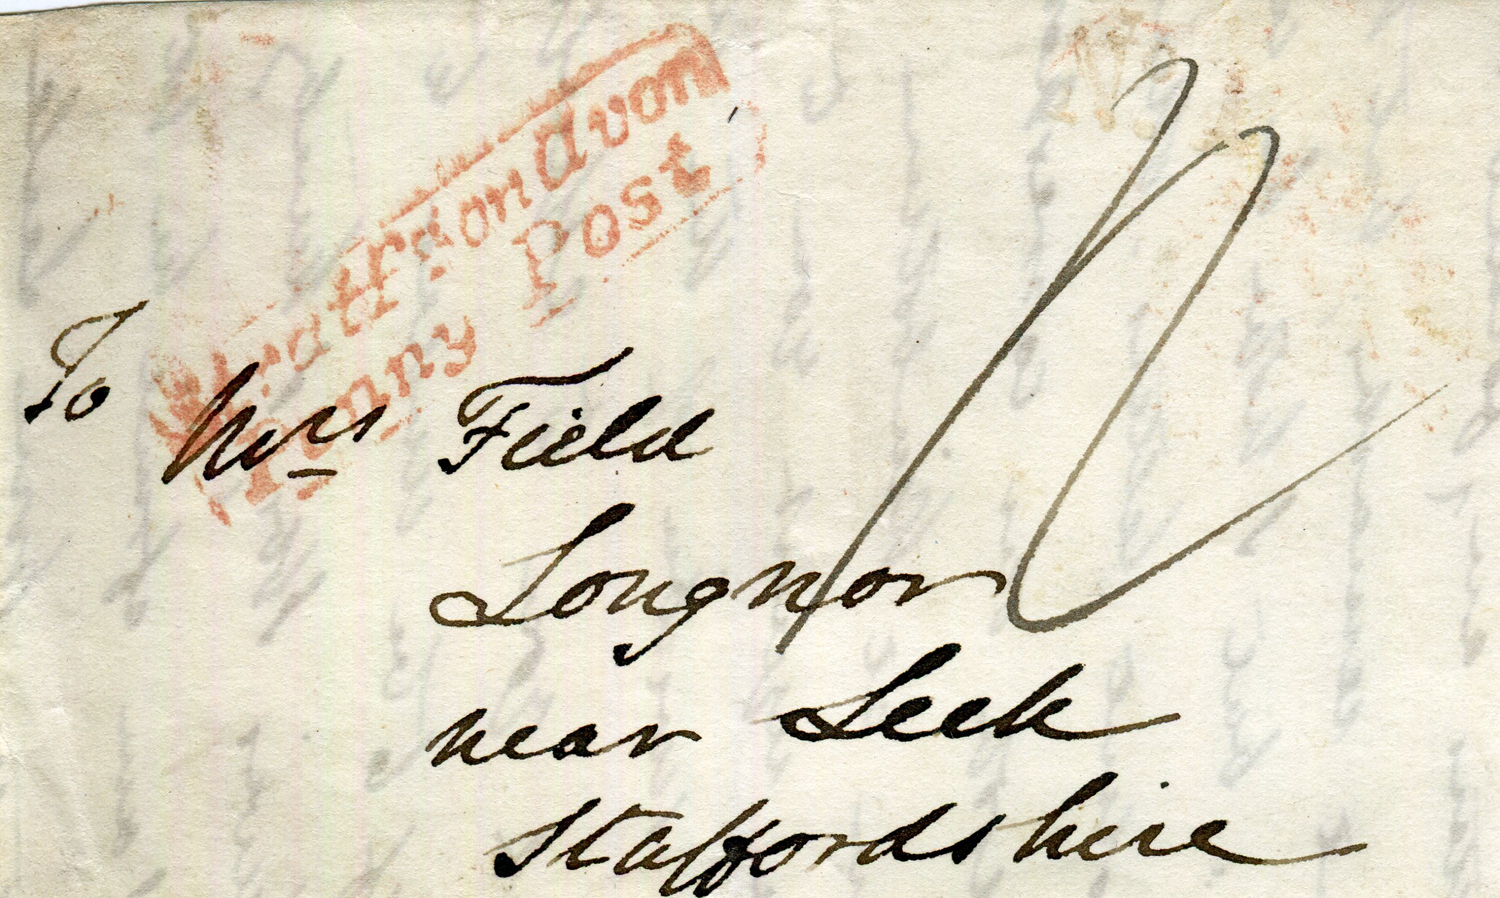 Stratfordonavon
Penny Post
To Mrs Field
Longnor
near Leek
Staffordshire